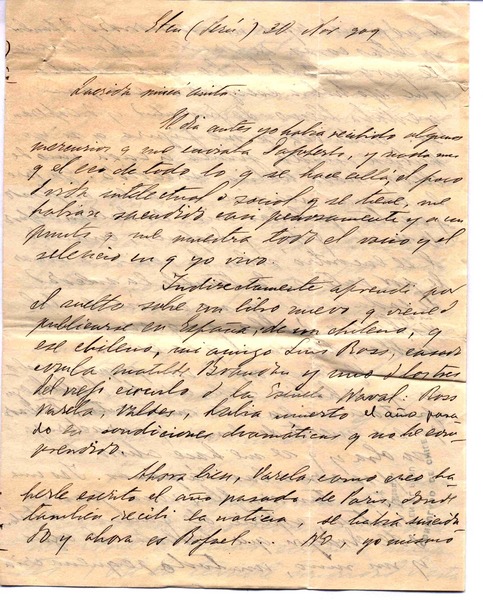 Eten (Perú) 20 Nov 909
Querida misiá
El día antes yo había recibido algunos
mercurios q me enviara y nada mas
q el eco de todo lo q se hace allí, el poco
d vida intelectual i social q se tiene, me
habían sacudido casi penosamente y a un
punto q me muestra todo el vacío y el
silencio en q yo vivo.
Indirectamente aprendí por
el suelto sobre un libro nuevo q viene d
publicarse en España, de un chileno, q
ese chileno, mi amigo Luis Ross, casado
con la Matilde y uno d los tres
del viejo círculo d la Escuela Naval: Ross
Varela, Valdés, había muerto el año pasa-
do en condiciones dramáticas y no he com-
prendido.
Ahora bien, Varela, como creo ha-
berle escrito el año pasado de Paris, donde
tambien recibí la noticia, se había suicida-
do y ahora es Rafael... No, yo mismo